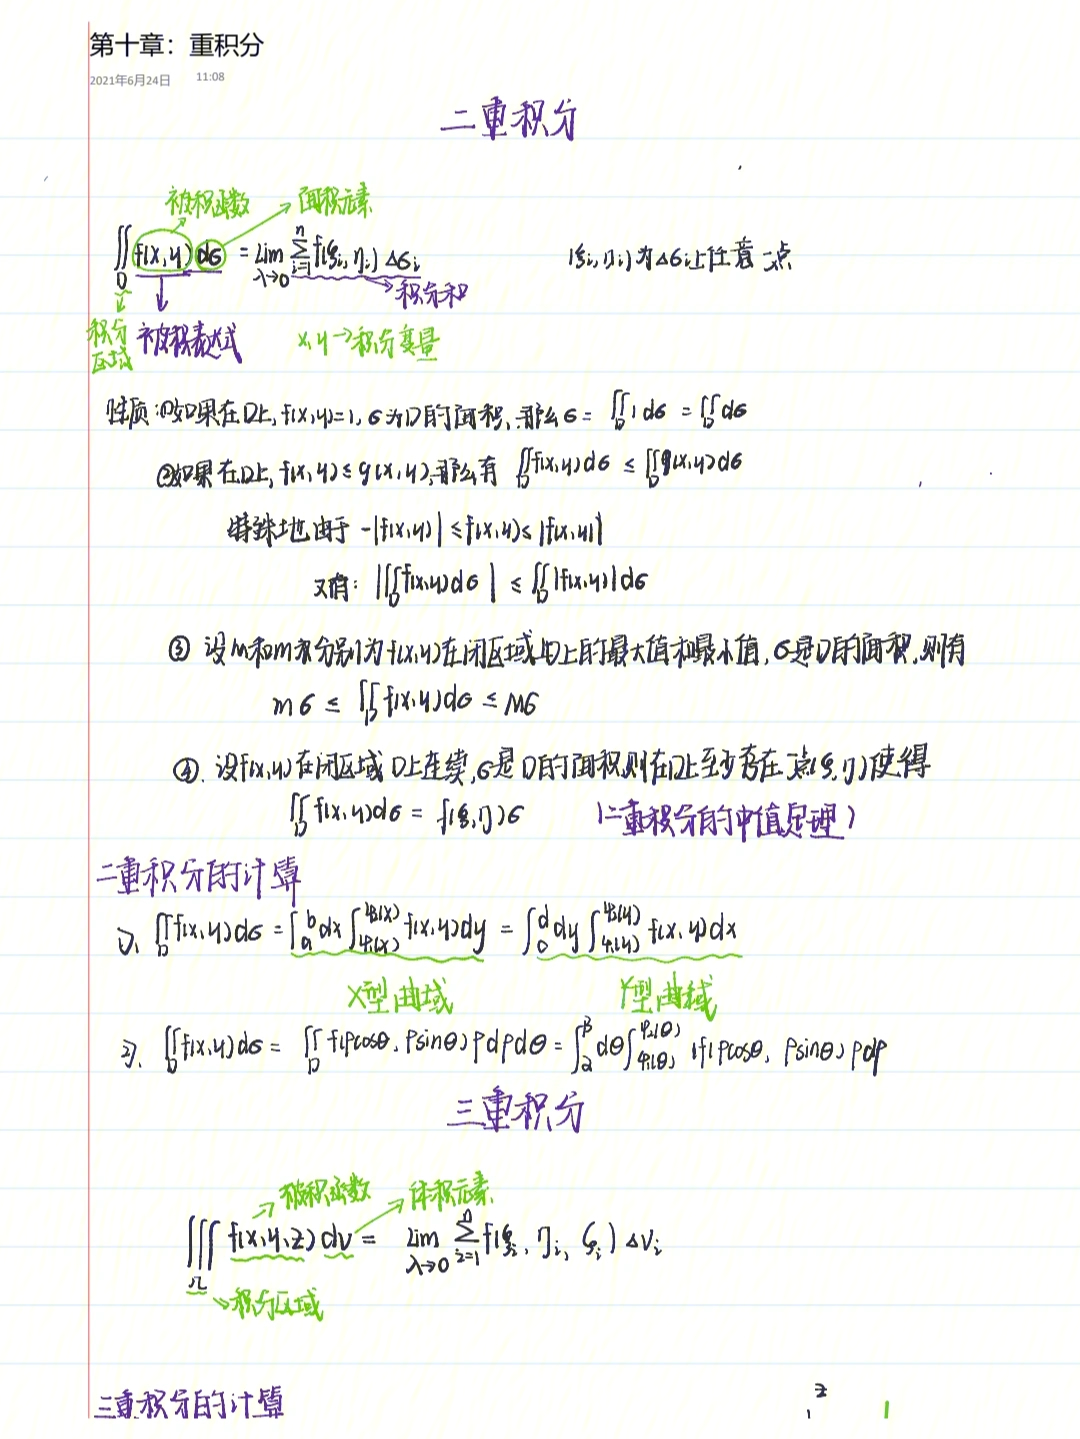 第十章：重积分
2021年6月24日 11:08
二重积分
被积函数 面积元素
∬_D f(x,y)dσ = lim_{λ→0} Σ_{i=1}^{n} f(ξi,ηi)Δσi (ξi,ηi)为Δσi上任意一点
积分和
积分区域 被积表达式 x,y→积分变量
性质：①如果在D上,f(x,y)=1,σ为D的面积,那么σ=∬_D 1dσ=∬_D dσ
②如果在D上,f(x,y)≤g(x,y),那么有 ∬_D f(x,y)dσ ≤ ∬_D g(x,y)dσ
特殊地由于 -|f(x,y)|≤f(x,y)≤|f(x,y)|
又有：|∬_D f(x,y)dσ| ≤ ∬_D |f(x,y)|dσ
③ 设M和m分别为f(x,y)在闭区域D上的最大值和最小值,σ是D的面积,则有
mσ ≤ ∬_D f(x,y)dσ ≤ Mσ
④.设f(x,y)在闭区域D上连续,σ是D的面积则在D上至少存在一点(ξ,η)使得
∬_D f(x,y)dσ = f(ξ,η)σ (二重积分的中值定理)
二重积分的计算
1). ∬_D f(x,y)dσ = ∫_a^b dx ∫_{φ1(x)}^{φ2(x)} f(x,y)dy = ∫_0^d dy ∫_{φ1(y)}^{φ2(y)} f(x,y)dx
X型曲域 Y型曲域
2). ∬_D f(x,y)dσ = ∬_D f(ρcosθ,ρsinθ)ρdρdθ = ∫_2^β dθ ∫_{φ1(θ)}^{φ2(θ)} f(ρcosθ, ρsinθ)ρdρ
三重积分
被积函数 体积元素
∭_Ω f(x,y,z)dv = lim_{λ→0} Σ_{i=1}^{n} f(ξi,ηi,ζi)ΔVi
积分区域
三重积分的计算
z